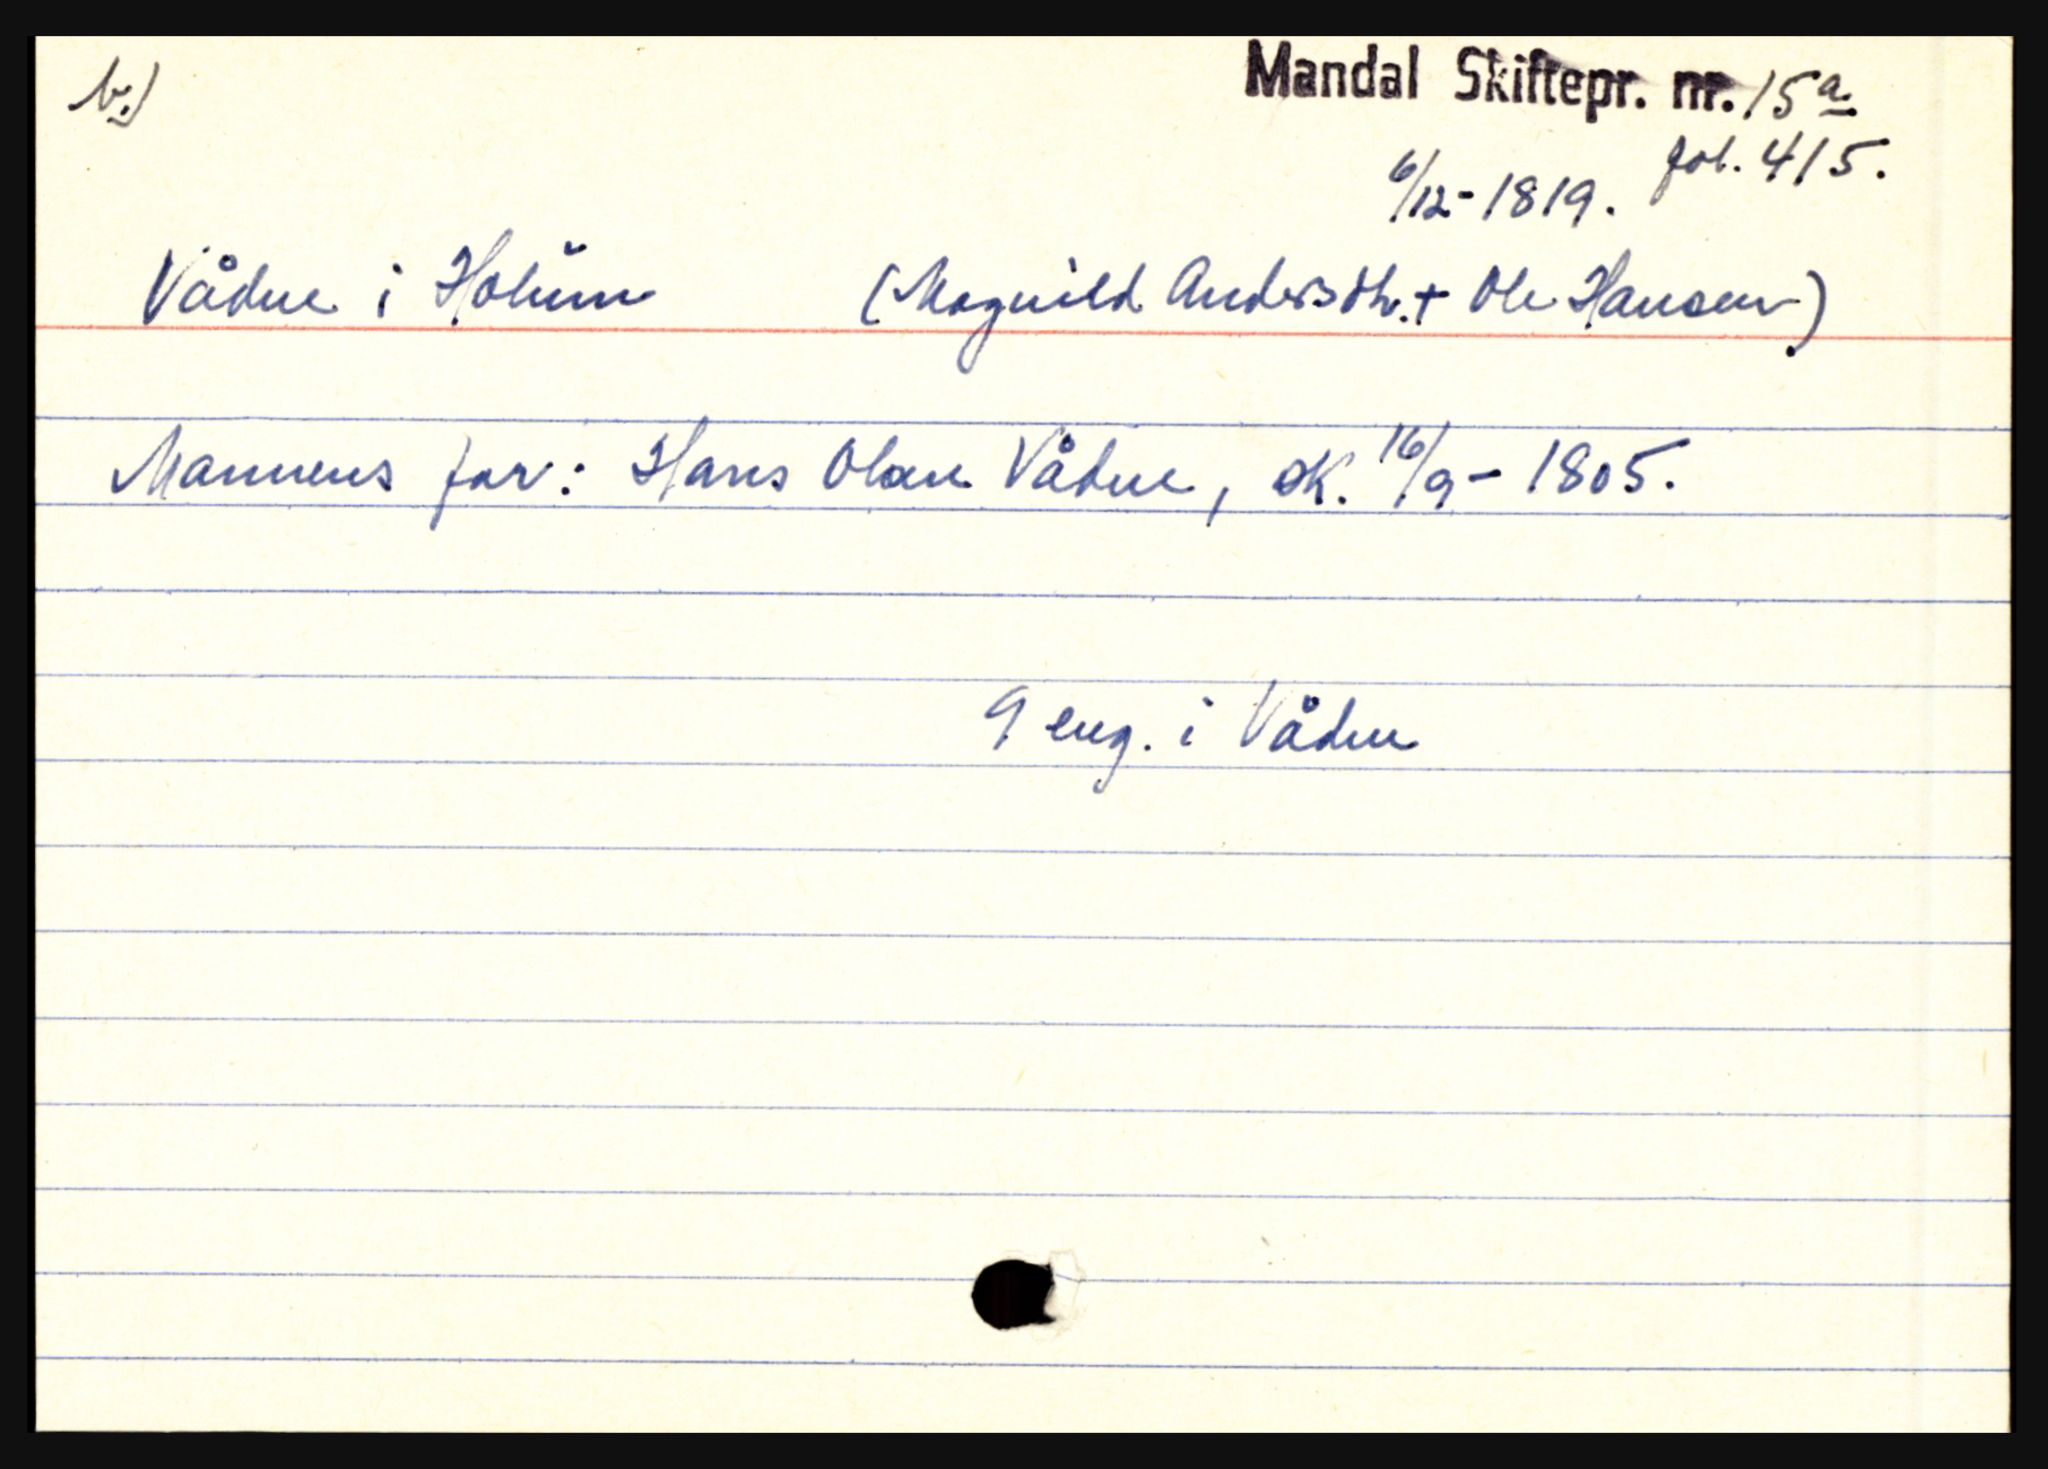 b.)
Mandal Skiftepr. nr. 15a.
fol. 415.
6/12-1819.
Vådne i Holum (Magnild Andersdtr. + Ole Hansen)
Mannens far: Hans Olsen Vådne, sk. 16/9 - 1805.
9 eng. i Vådne